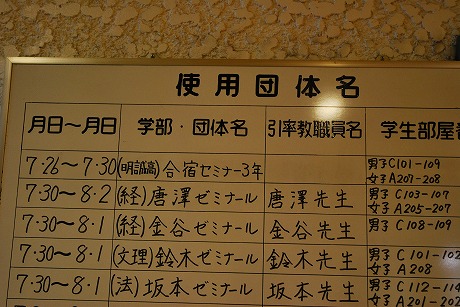 使用団体名
月日〜月日 学部・団体名 引率教職員名 学生部屋番
7・26〜7・30 合宿セミナー3年 男子C101-109
女子A207-208
7・30〜8・2 (経)唐澤ゼミナール 唐澤先生 男子C103-107
女子A205-207
7・30〜8・1 (経)金谷ゼミナール 金谷先生 男子C108-109
7・30〜8・1 (文理)鈴木ゼミナール 鈴木先生 男子C101-102
女子A208
7・30〜8・1 (法)坂本ゼミナール 坂本先生 男子C112-114
女子A201-201